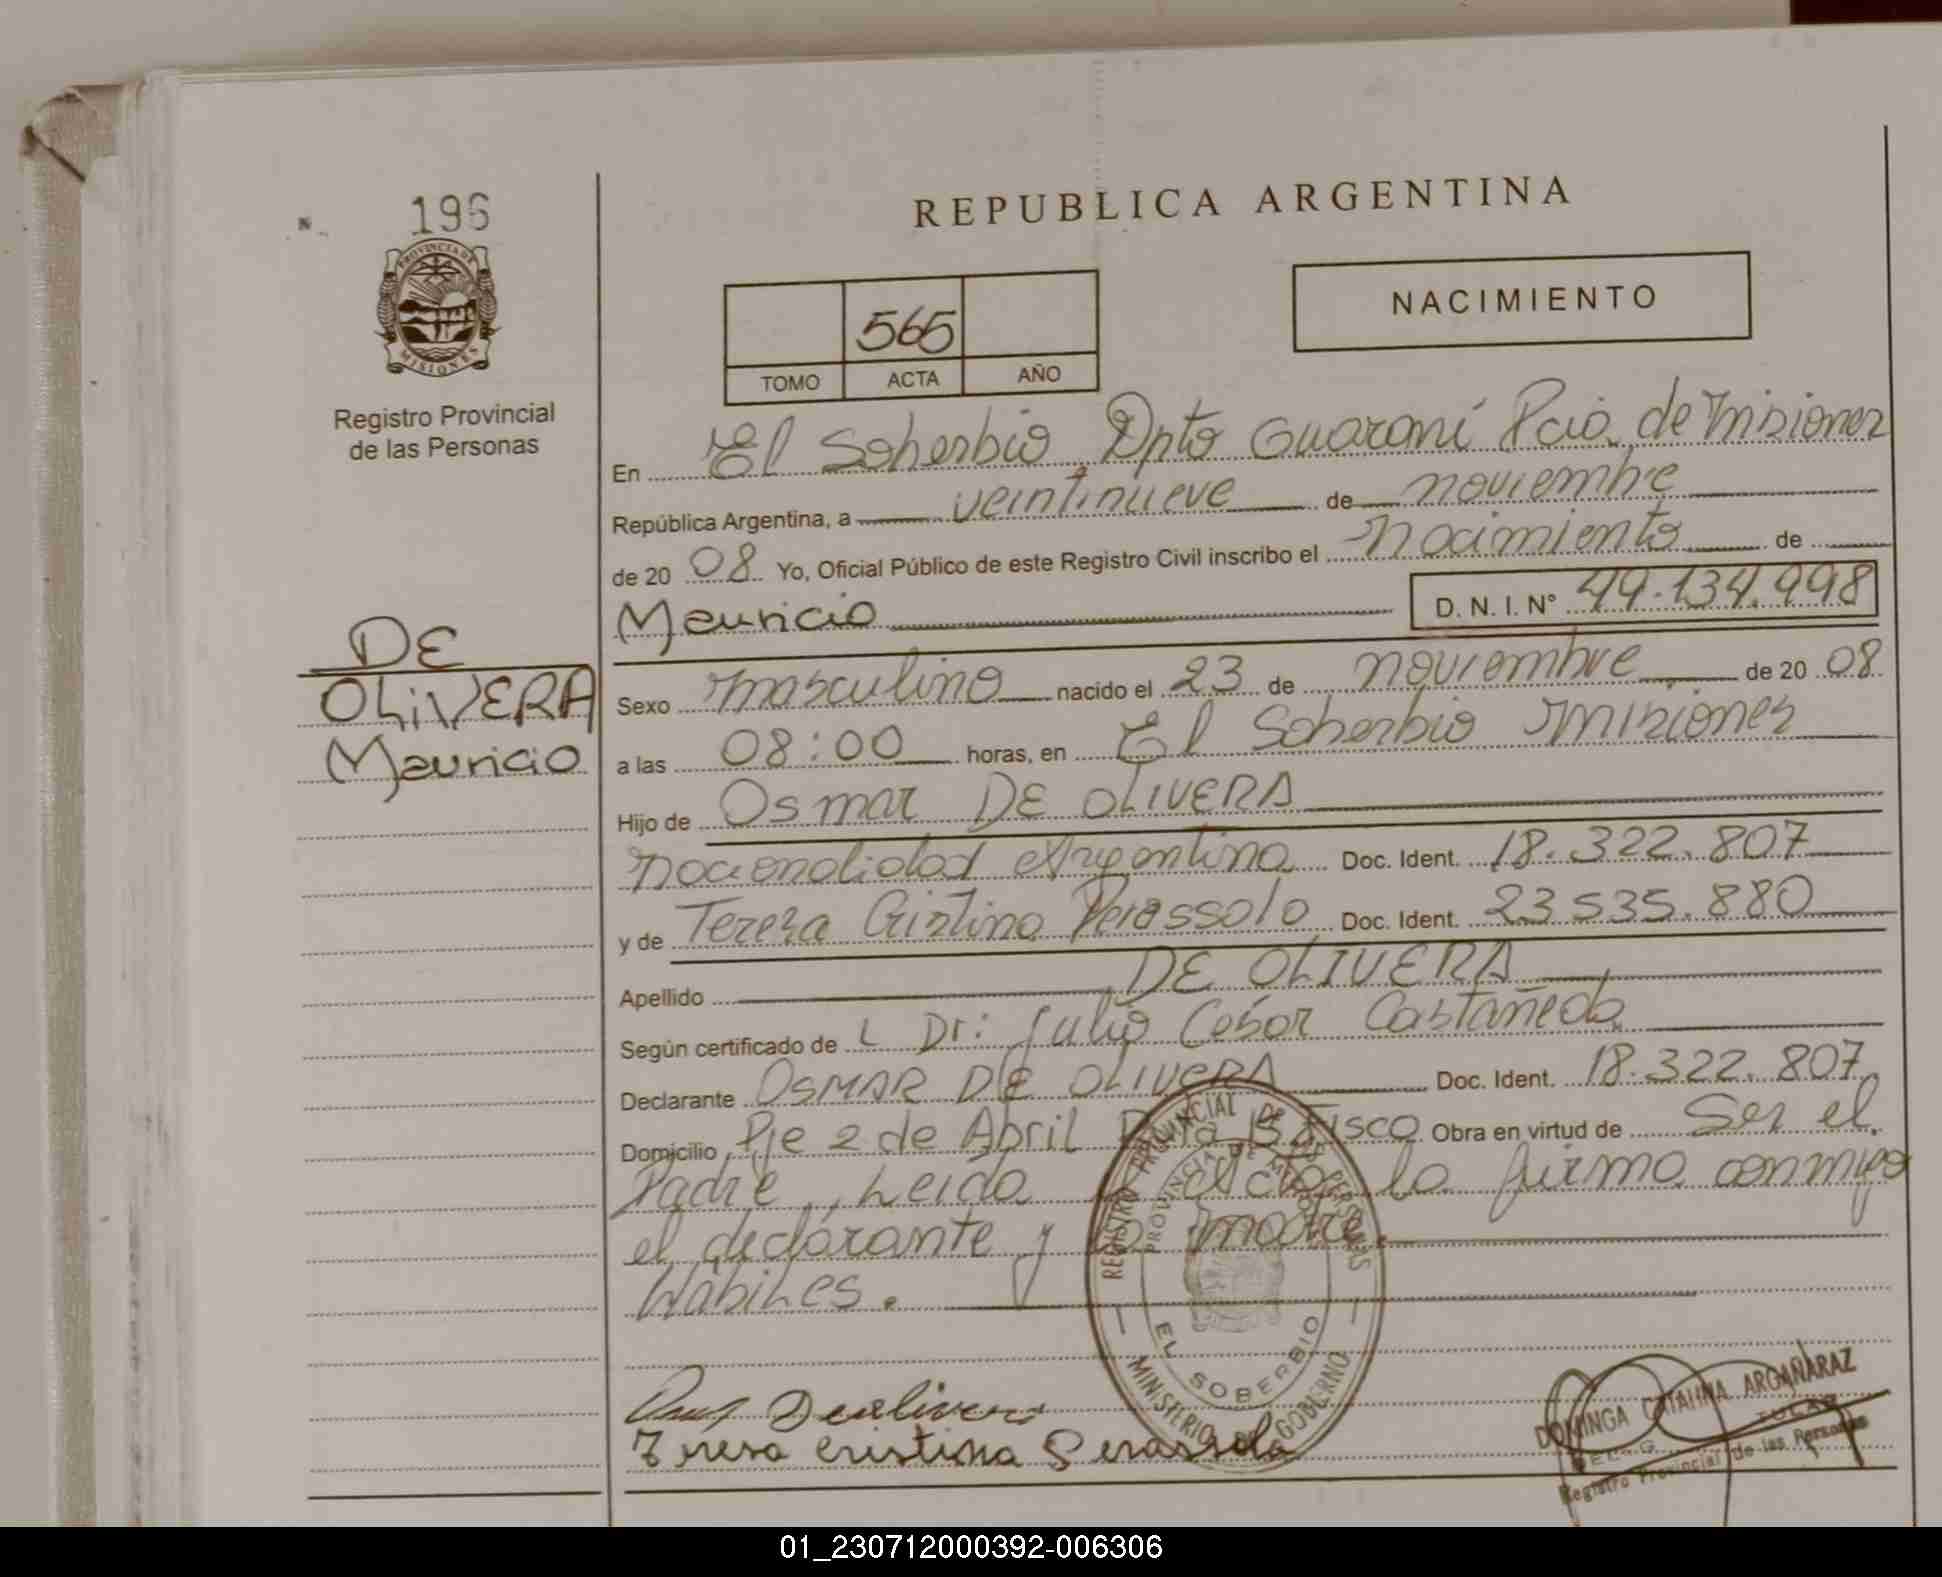 196
PROVINCIA DE
MISIONES
Registro Provincial
de las Personas
DE
OLIVERA
Mauricio
REPUBLICA ARGENTINA
565
TOMO ACTA AÑO
NACIMIENTO
En El Soberbio Dpto Guaraní Pcia de Misiones
República Argentina, a veintinueve de noviembre
de 20 08 Yo, Oficial Público de este Registro Civil inscribo el nacimiento de
Mauricio D. N. I. N° 49.134.998
Sexo masculino nacido el 23 de noviembre de 20 08
a las 08:00 horas, en El Soberbio Misiones
Hijo de Osmar DE OLIVERA
nacionalidad Argentina Doc. Ident. 18.322.807
y de Tereza Cristina Perassolo Doc. Ident. 23.535.880
Apellido DE OLIVERA
Según certificado de L Dr: Julio César Castañeda
Declarante OSMAR DE OLIVERA Doc. Ident. 18.322.807
Domicilio Pje 2 de Abril Obra en virtud de Ser el
Padre, Leida el Acta, la firma conmigo
el declarante y la madre.
Hábiles.
REGISTRO PROVINCIAL DE LAS PERSONAS
PROVINCIA DE MISIONES
EL SOBERBIO
MINISTERIO DE GOBIERNO
Deolivera
Teresa Cristina Perassola
DOMINGA CATALINA ARGAÑARAZ
Registro Provincial de las Personas
01_230712000392-006306